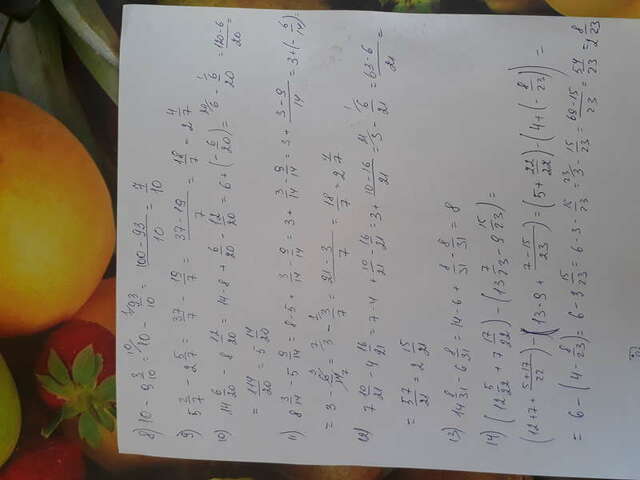 8) 10 - 9 3/10 = 10/10 - 93/10 = (100-93)/10 = 7/10
9) 5 2/7 - 2 5/7 = 37/7 - 19/7 = (37-19)/7 = 18/7 = 2 4/7
10) 14 6/20 - 8 12/20 = 14-8 + 6/20 - 12/20 = 6 + (- 6/20) = 20/6 - 1/6/20 = (120-6)/20 =
= 114/20 = 5 14/20
11) 8 3/14 - 5 9/14 = 8-5 + 3/14 - 9/14 = 3 + 3/14 - 9/14 = 3 + (3-9)/14 = 3 + (- 6/14) =
= 3 - 6/14 = 7/3 - 3/7 = (21-3)/7 = 18/7 = 2 4/7
12) 7 10/21 - 4 16/21 = 7-4 + 10/21 - 16/21 = 3 + (10-16)/21 = 21/3 - 6/21 = (63-6)/21 =
= 57/21 = 2 15/21
13) 14 8/31 - 6 8/31 = 14-6 + 8/31 - 8/31 = 8
14) (12 5/22 + 7 17/22) - (13 7/23 - 9 15/23) =
(12+7+ (5+17)/22) - (13-9 + (7-15)/23) = (5 + 22/22) - (4 + (- 8/23)) =
= 6 - (4 - 8/23) = 6 - 3 15/23 = 6-3 - 15/23 = 23/3 - 15/23 = (69-15)/23 = 54/23 = 2 8/23